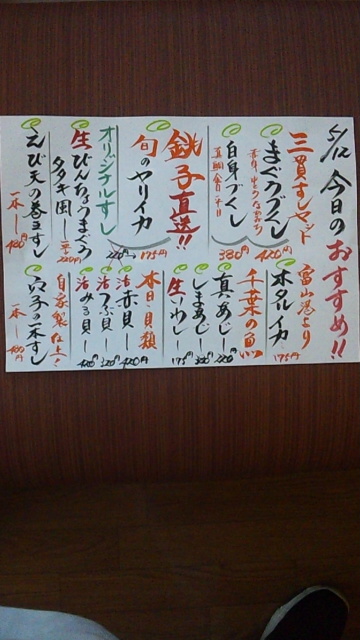 5/12 今日のおすすめ!!
三貫すしセット
まぐろづくし
420円
白身づくし
380円
銚子直送!!
旬のヤリイカ
175円
220円
オリジナルすし
生びんちょうまぐろ
タタキ風
220円
えび天の巻立すし
一本
480円
富山港より
ホタルイカ
175円
千葉の魚
真あじ
220円
しまあじ
320円
生いわし
175円
本日の貝類
活赤貝
420円
活つぶ貝
320円
活みる貝
420円
自家製仕上げ
穴子の一本すし
一本